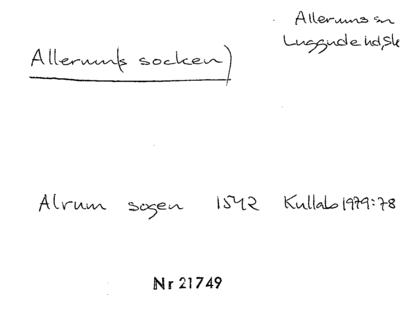 Allerums sn
Luggude hd, Sk
Allerum(s socken)
Alrum sogen 1542 Kullabo 1979:78
Nr 21749